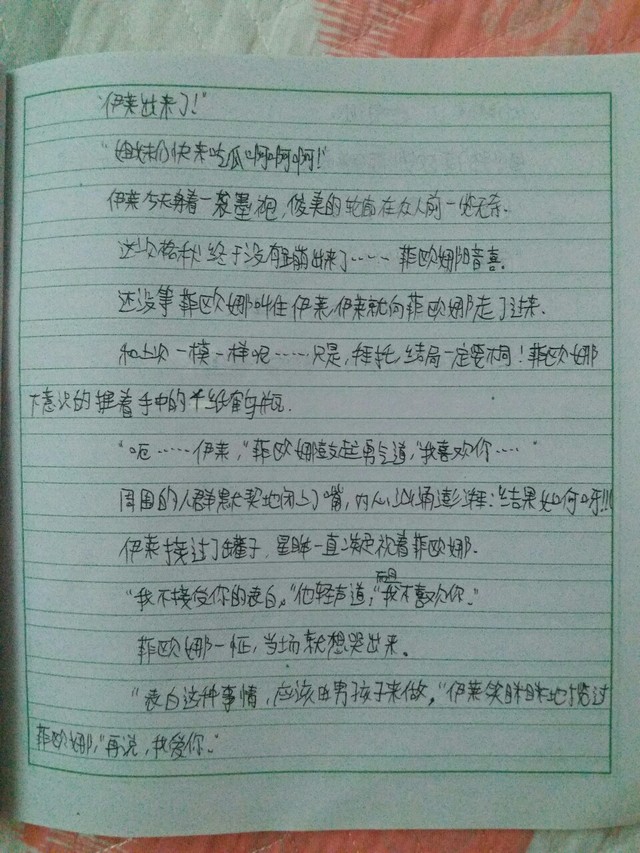 “伊莱出来了！”
“姐妹们快来吃瓜啊啊啊！”
伊莱今天身着一袭墨袍，俊美的轮廓在众人前一览无余.
这次格秋终于没有蹦出来了……菲欧娜暗喜.
还没等菲欧娜叫住伊莱，伊莱就向菲欧娜走了过来.
和上次一模一样呢……只是，拜托，结局一定要不同！菲欧娜
下意识的握着手中的千纸鹤瓶.
“呃……伊莱，”菲欧娜鼓起勇气道，“我喜欢你……”
周围的人群默契地闭上了嘴，内心汹涌澎湃：结果如何呀！！！
伊莱接过了罐子，星眸一直凝视着菲欧娜.
“我不接受你的表白，”他轻声道，“而且我不喜欢你。”
菲欧娜一怔，当场就想哭出来。
“表白这种事情，应该由男孩子来做，”伊莱笑眯眯地揽过
菲欧娜，“再说，我爱你。”